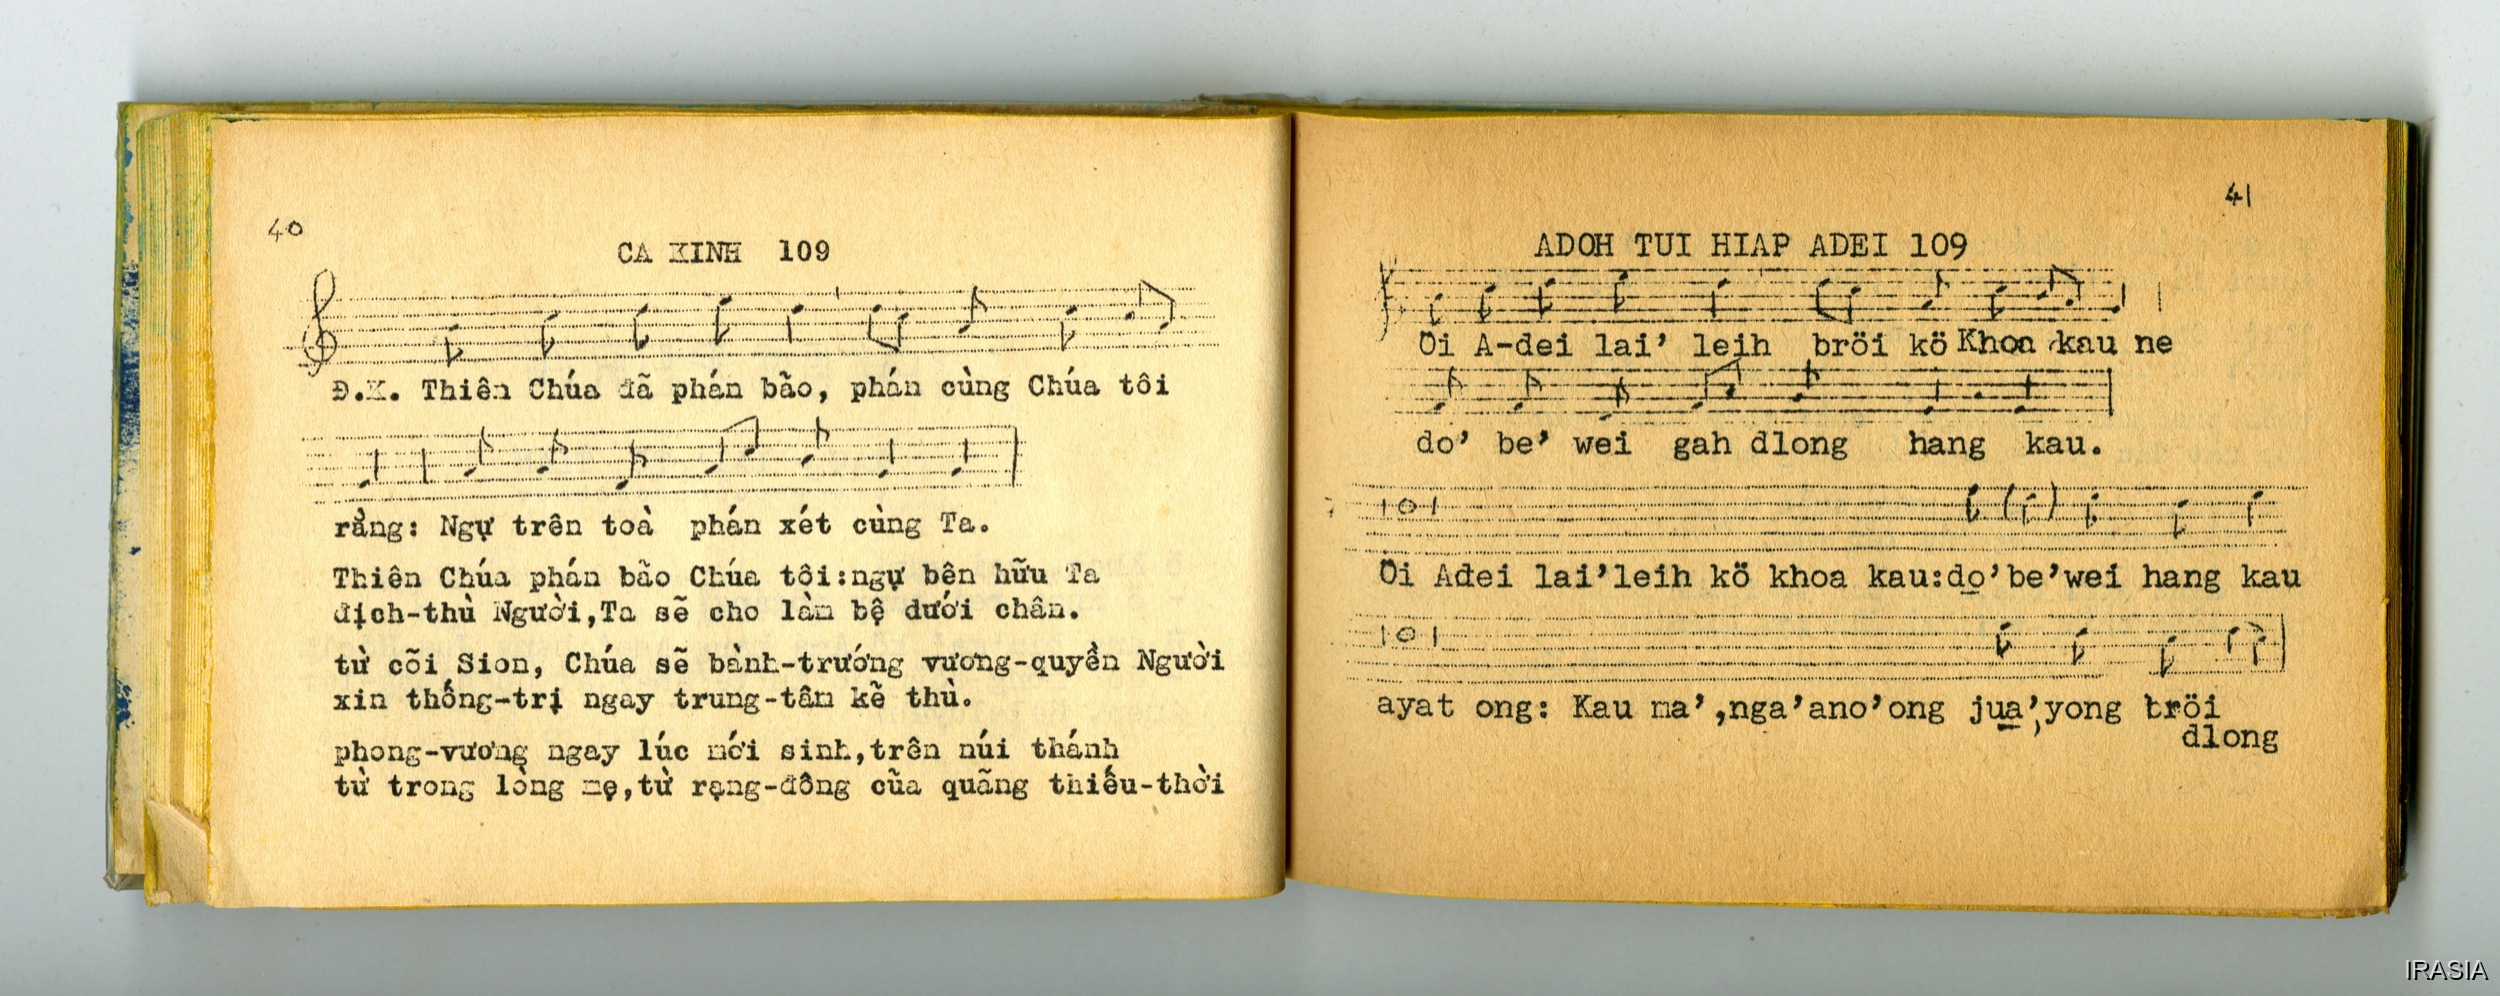 40
CA KINH 109
Đ.K. Thiên Chúa đã phán bão, phán cùng Chúa tôi
rằng: Ngự trên toà phán xét cùng Ta.
Thiên Chúa phán bão Chúa tôi:ngự bên hữu Ta
địch-thù Người,Ta sẽ cho làm bệ dưới chân.
từ cõi Sion, Chúa sẽ bành-trướng vương-quyền Người
xin thống-trị ngay trung-tâm kẽ thù.
phong-vương ngay lúc mới sinh,trên núi thánh
từ trong lòng mẹ,từ rạng-đông cũa quãng thiếu-thời
41
ADOH TUI HIAP ADEI 109
Öi A-dei lai' leih bröi kö Khoa kau ne
do' be' wei gah dlong hang kau.
Öi Adei lai'leih kö khoa kau:do'be'wei hang kau
ayat ong: Kau ma',nga'ano'ong jua',yong bröi
dlong
IRASIA